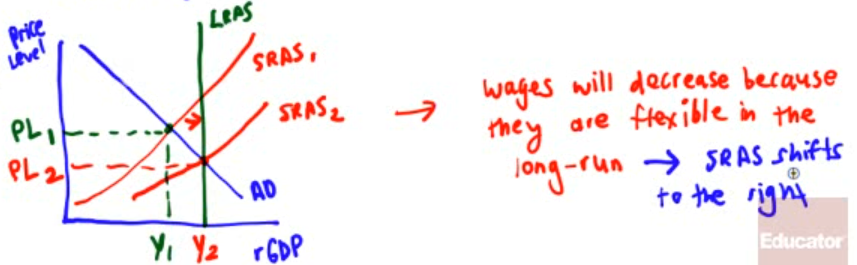 Price
Level
LRAS
SRAS₁
SRAS₂
PL₁
PL₂
AD
Y₁ Y₂ rGDP
→ wages will decrease because
they are flexible in the
long-run → SRAS shifts
to the right
Educator